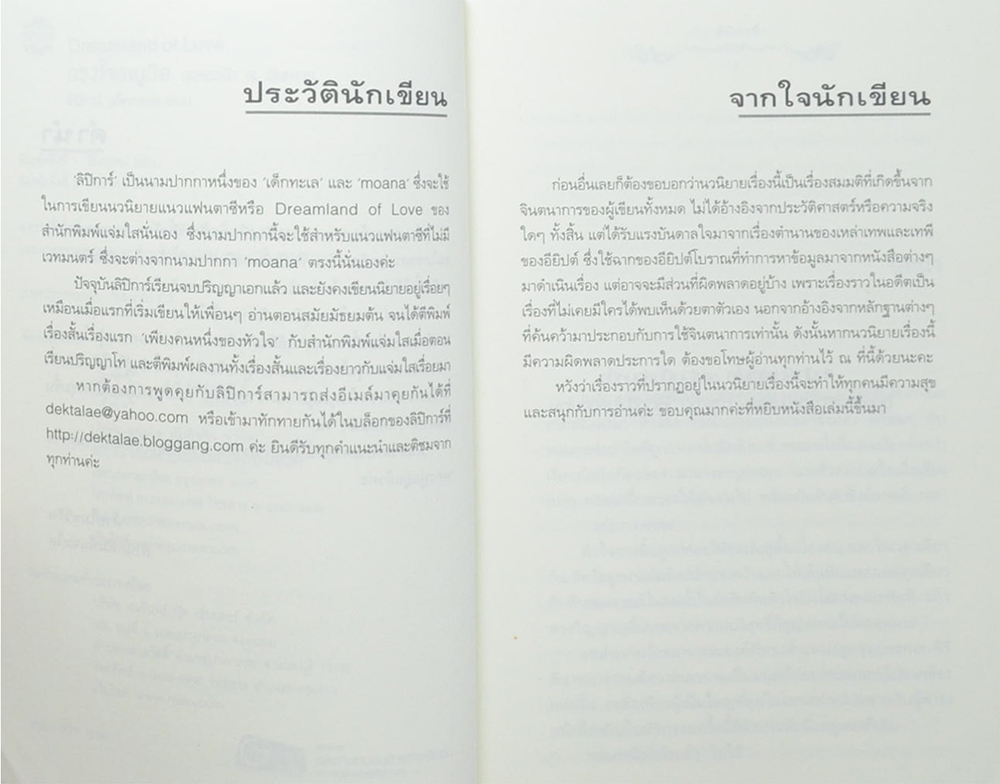 ประวัตินักเขียน
'ลิปิการ์' เป็นนามปากกาหนึ่งของ 'เด็กทะเล' และ 'moana' ซึ่งจะใช้
ในการเขียนนวนิยายแนวแฟนตาซีหรือ Dreamland of Love ของ
สำนักพิมพ์แจ่มใสนั่นเอง ซึ่งนามปากกานี้จะใช้สำหรับแนวแฟนตาซีที่ไม่มี
เวทมนตร์ ซึ่งจะต่างจากนามปากกา 'moana' ตรงนี้นั่นเองค่ะ
ปัจจุบันลิปิการ์เรียนจบปริญญาเอกแล้ว และยังคงเขียนนิยายอยู่เรื่อยๆ
เหมือนเมื่อแรกที่เริ่มเขียนให้เพื่อนๆ อ่านตอนสมัยมัธยมต้น จนได้ตีพิมพ์
เรื่องสั้นเรื่องแรก 'เพียงคนหนึ่งของหัวใจ' กับสำนักพิมพ์แจ่มใสเมื่อตอน
เรียนปริญญาโท และตีพิมพ์ผลงานทั้งเรื่องสั้นและเรื่องยาวกับแจ่มใสเรื่อยมา
หากต้องการพูดคุยกับลิปิการ์สามารถส่งอีเมล์มาคุยกันได้ที่
dektalae@yahoo.com หรือเข้ามาทักทายกันได้ในบล็อกของลิปิการ์ที่
http://dektalae.bloggang.com ค่ะ ยินดีรับทุกคำแนะนำและติชมจาก
ทุกท่านค่ะ
จากใจนักเขียน
ก่อนอื่นเลยก็ต้องขอบอกว่านวนิยายเรื่องนี้เป็นเรื่องสมมติที่เกิดขึ้นจาก
จินตนาการของผู้เขียนทั้งหมด ไม่ได้อ้างอิงจากประวัติศาสตร์หรือความจริง
ใดๆ ทั้งสิ้น แต่ได้รับแรงบันดาลใจมาจากเรื่องตำนานของเหล่าเทพและเทพี
ของอียิปต์ ซึ่งใช้ฉากของอียิปต์โบราณที่ทำการหาข้อมูลมาจากหนังสือต่างๆ
มาดำเนินเรื่อง แต่อาจจะมีส่วนที่ผิดพลาดอยู่บ้าง เพราะเรื่องราวในอดีตเป็น
เรื่องที่ไม่เคยมีใครได้พบเห็นด้วยตาตัวเอง นอกจากอ้างอิงจากหลักฐานต่างๆ
ที่ค้นคว้ามาประกอบกับการใช้จินตนาการเท่านั้น ดังนั้นหากนวนิยายเรื่องนี้
มีความผิดพลาดประการใด ต้องขอโทษผู้อ่านทุกท่านไว้ ณ ที่นี้ด้วยนะคะ
หวังว่าเรื่องราวที่ปรากฏอยู่ในนวนิยายเรื่องนี้จะทำให้ทุกคนมีความสุข
และสนุกกับการอ่านค่ะ ขอบคุณมากค่ะที่หยิบหนังสือเล่มนี้ขึ้นมา